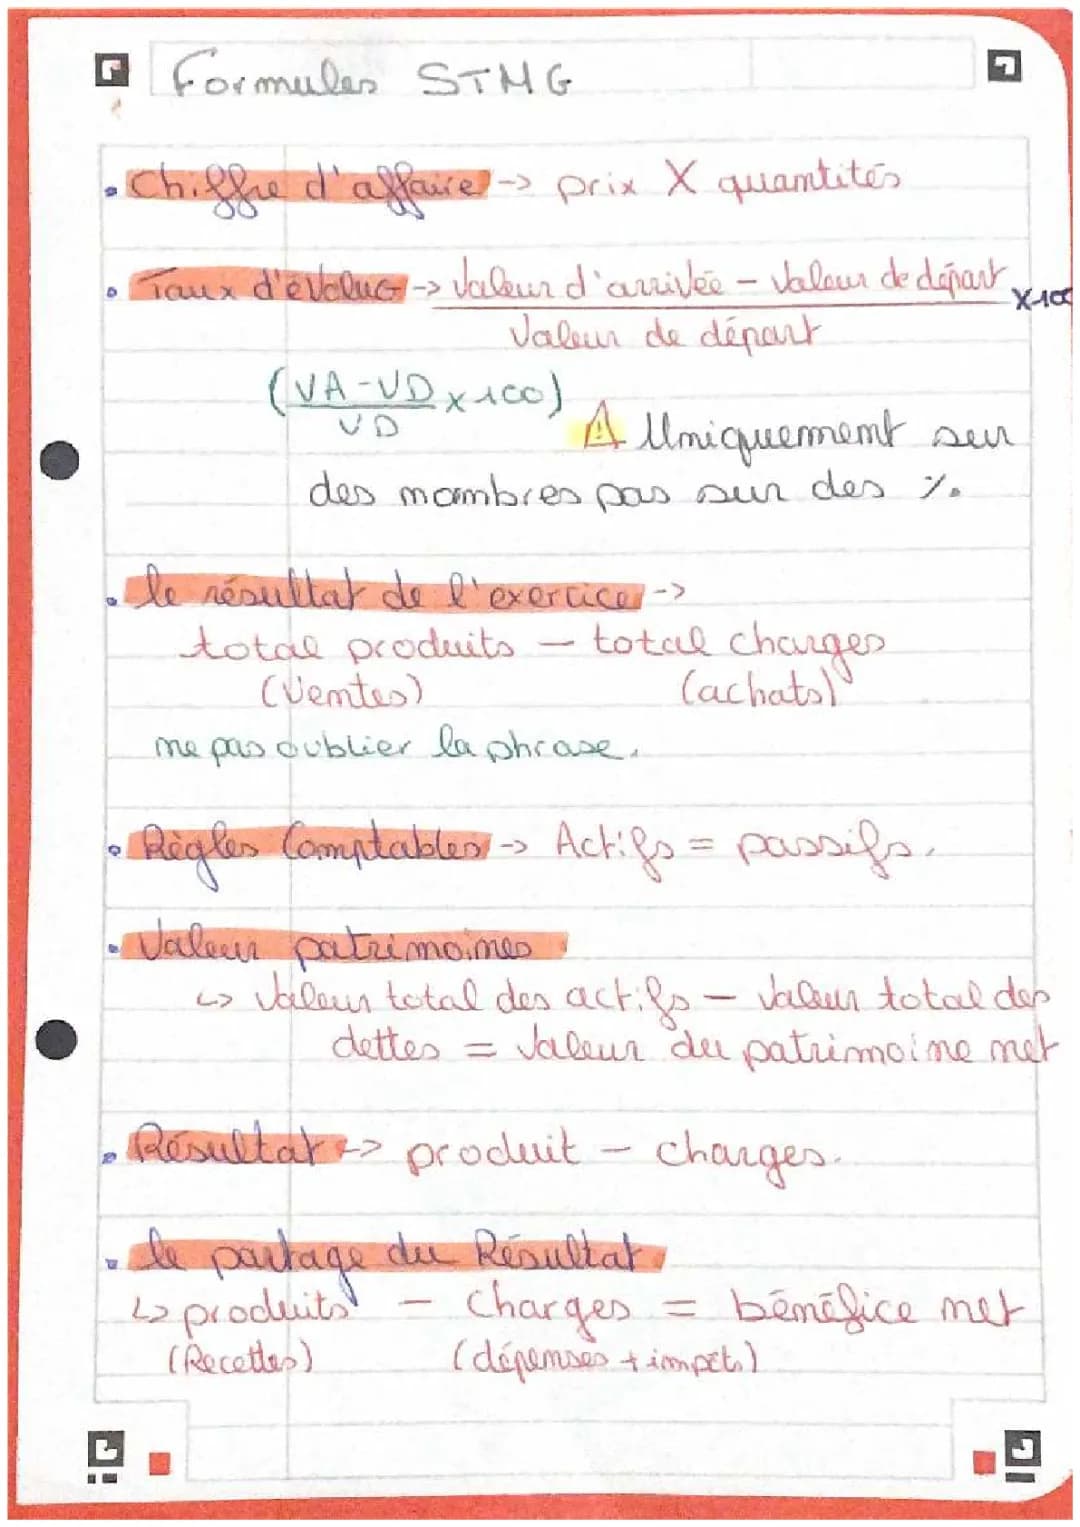 Formules STMG
• Chiffre d'affaire -> prix X quantités
• Taux d'évolu° -> Valeur d'arrivée - Valeur de départ X100
Valeur de départ
(VA-VD x 100)
VD
⚠ Uniquement sur
des nombres pas sur des %.
• le résultat de l'exercice ->
total produits - total charges
(Ventes) (achats)
ne pas oublier la phrase.
• Règles Comptables -> Actifs = passifs.
• Valeur patrimoines
↳ Valeur total des actifs - Valeur total des
dettes = Valeur du patrimoine net
• Résultat -> produit - charges.
• le partage du Résultat
↳ produits - Charges = bénéfice net
(Recettes) (dépenses + impôts)